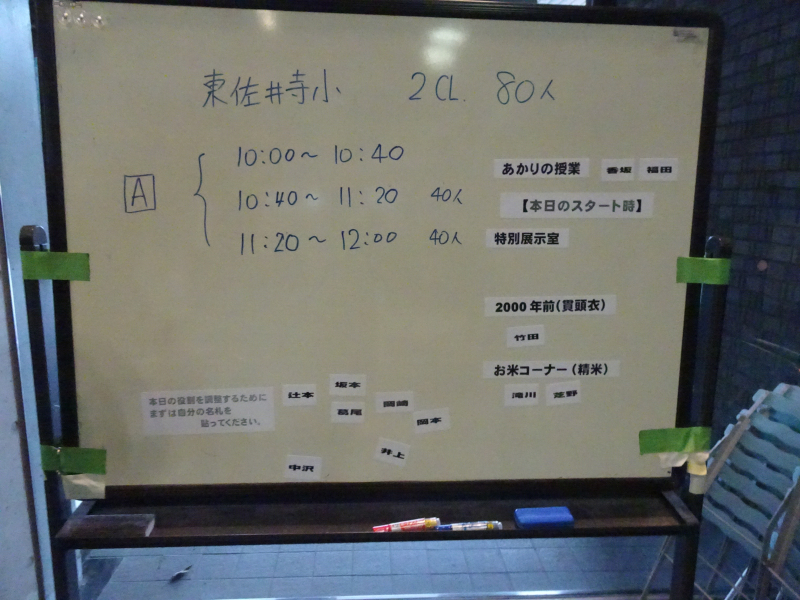 東佐井寺小 2CL. 80人
A
10:00〜10:40
10:40〜11:20 40人
11:20〜12:00 40人
あかりの授業 香坂 福田
【本日のスタート時】
特別展示室
2000年前(貫頭衣)
竹田
お米コーナー(精米)
滝川 荻野
本日の役割を調整するために
まずは自分の名札を
貼ってください。
辻本 坂本
葛尾 岡崎
岡本
井上
中沢